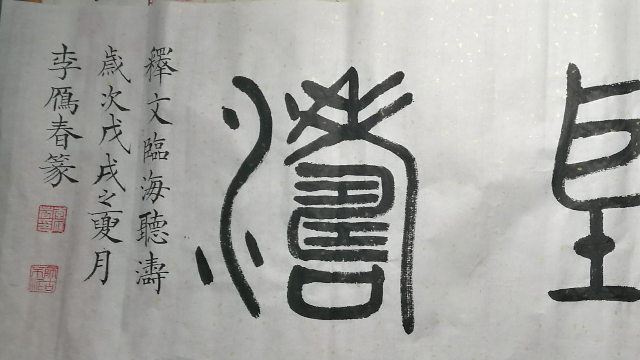 濤
釋文臨海聽濤
歲次戊戌之夏月
李鴈春篆